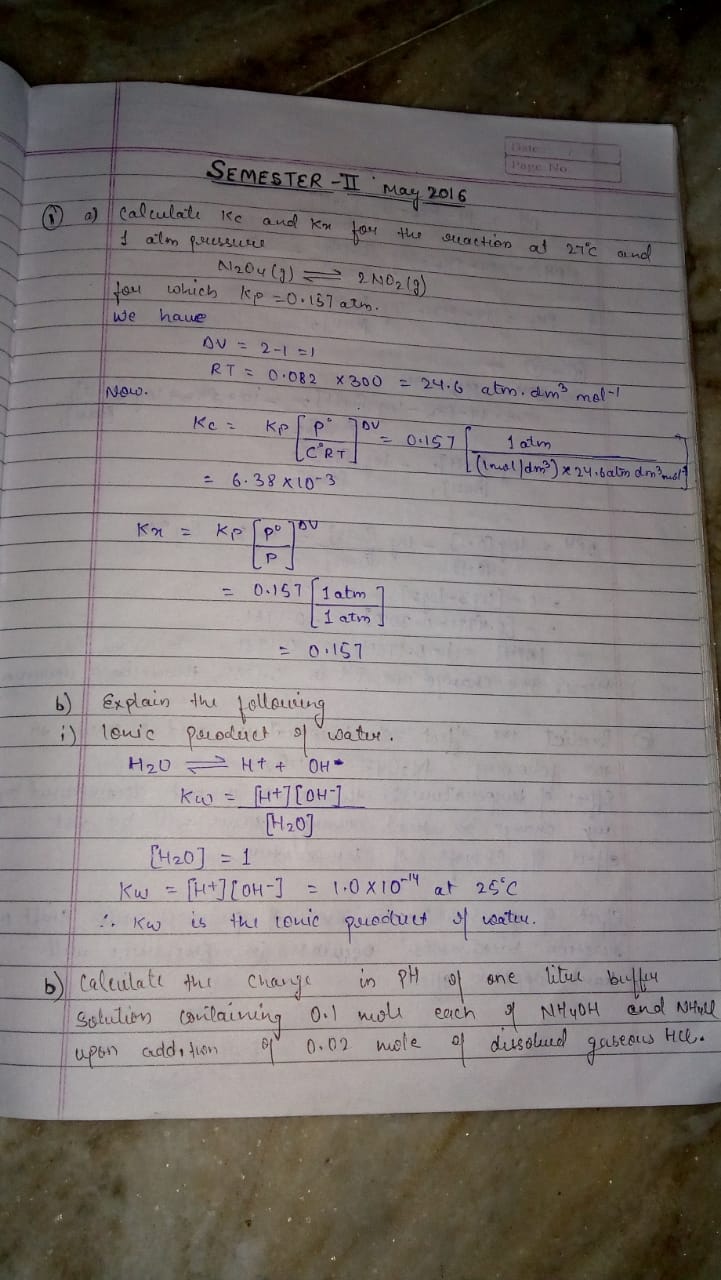 Date
Page No.
SEMESTER - II May 2016
① a) Calculate Kc and Kx for the reaction at 27°C and
1 atm pressure
N2O4(g) ⇌ 2NO2(g)
for which Kp = 0.157 atm.
We have
ΔV = 2-1 = 1
RT = 0.082 × 300 = 24.6 atm. dm³ mol-1
Now.
Kc = Kp [P°/C°RT]^ΔV = 0.157 [1 atm/(1mol/dm³) × 24.6 atm dm³ mol-1]
= 6.38 × 10-3
Kx = Kp [P°/P]^ΔV
= 0.157 [1 atm/1 atm]
= 0.157
b) Explain the following
i) Ionic product of water.
H2O ⇌ H+ + OH-
Kw = [H+][OH-]
[H2O]
[H2O] = 1
Kw = [H+][OH-] = 1.0 × 10-14 at 25°C
∴ Kw is the ionic product of water.
b) Calculate the change in pH of one litre buffer
solution containing 0.1 mole each of NH4OH and NH4Cl
upon addition of 0.02 mole of dissolved gaseous HCl.